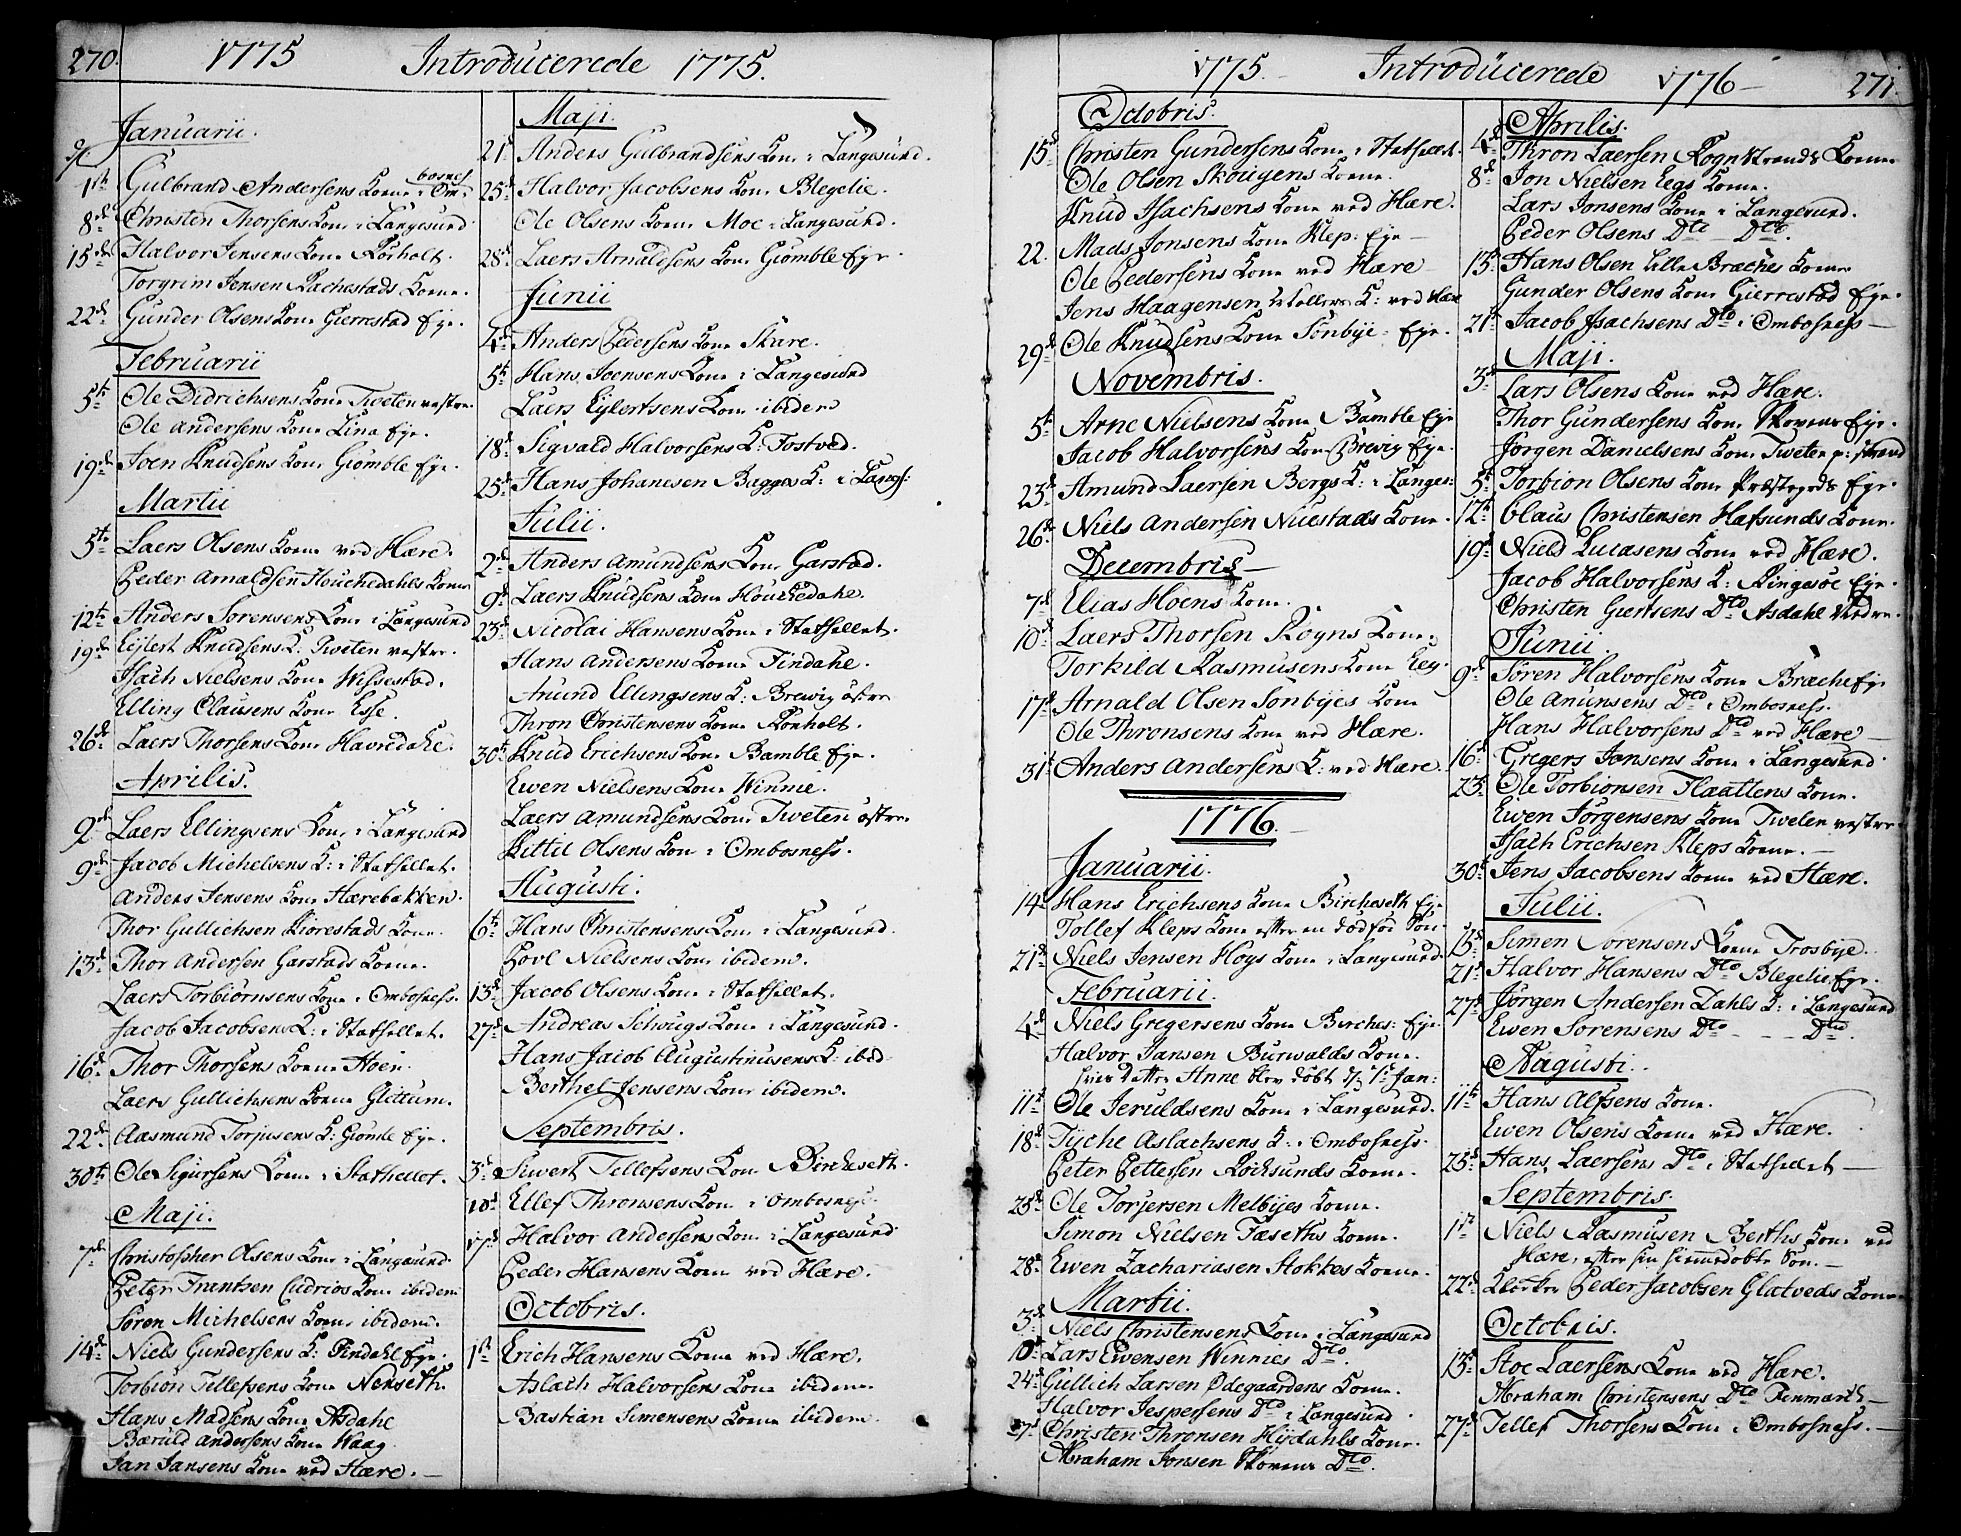 270. 1775 Introducerede 1775.
Januarii.
1ste Gulbrand Andersens Kone i Ombosnes
8de Christen Thorsens Kone i Langesund
15de Halvor Jensens Kone Rönholt.
Torgrim Jensen Rachestads Kone.
22de Gunder Olsens Kone Gierrestad Eye.
Februarii
5te Ole Didrichsens Kone Tweten vestre.
Ole Andersens Kone Lina Eye.
19de Joen Knudsens Kone Giömble Eye.
Martii
5te Laers Olsens Kone ved Hære.
Peder Arnaldsen Houchedahls Kone
12te Anders Sörensens Kone i Langesund
19de Eilert Knudsens K: Tweten vestre.
Isach Nielsens Kone Wissestad.
Elling Clausens Kone Esse.
26de Laers Thorsens Kone Havredahl.
Aprilis.
2de Laers Ellingsens Kone i Langesund
9de Jacob Michelsens K: i Stathellet.
Anders Jensens Kone Hærebakken.
Thor Gullichsen Kiörestads Kone.
13de Thor Andersen Garstads Kone.
Laers Torbiörnsens Kone i Ombosness.
Jacob Jacobsens K: i Stathellet.
16de Thor Thorsens Kone Hoen.
Laers Gullichsens Kone Glittum.
22de Aasmund Torjusens K: Giömle Eye.
30te Ole Sigursens Kone i Stathellet.
Maji.
7de Christopher Olsens Kone i Langesund.
Peter Frantzen Cudrios Kone ibidem
Sören Michelsens Kone ibidem.
14de Niels Gundersens K: Findahl Eye.
Torbiön Tellefsens Kone Nenseth.
Hans Madsens Kone Asdahl
Bæruld Andersens Kone Waag.
Jan Jansens Kone ved Hære.
Maji.
21 Anders Gulbrandsens Kone i Langesund.
25de Halvor Jacobsens Kone Blegelie.
Ole Olsens Kone Moe i Langesund.
28de Laers Arnaldsens Kone Giömble Eye.
Junii
4de Anders Pedersens Kone Skare.
5te Hans Joensens Kone i Langesund
Laers Eylertsens Kone ibidem
18de Sigvald Halvorsens K: Fostved.
25de Hans Johanesen Bagges K: i Langs:
Julii.
2de Anders Amundsens Kone Garstad.
9de Laers Knudsens Kone Houchedahl.
23de Nicolai Hansens Kone i Stathellet.
Hans Andersens Kone Findahl.
Amund Ellingsens K: Brewig östre
Thron Christensens Kone Rönholt.
30te Knud Erichsens Kone Bamble Eye.
Ewen Nielsens Kone Winnie.
Laers Amundsens Kone Tweten östre.
Kittil Olsens Kone i Ombosness.
Augusti.
6te Hans Christensens Kone i Langesund.
Povl Nielsens Kone ibidem.
13de Jacob Olsens Kone i Stathellet.
27de Andreas Schougs Kone i Langesund.
Hans Jacob Augustinusens K: ibid
Berthel Jensens Kone ibidem.
Septembris.
3de Siwert Tellefsens Kone Bircheseth.
10de Ellef Thronsens Kone i Ombosness.
17de Halvor Andersens Kone i Langesund
Peder Hansens Kone ved Hære.
Octobris.
1ste Erich Hansens Kone ved Hære.
Aslach Halvorsens Kone ibidem
Bastian Simensens Kone ibidem.
1775. Introducerede 1776 271.
Octobris.
15de Christen Gundersens Kone i Stathellet.
Ole Olsen Skougens Kone.
Knud Isachsens Kone ved Hære.
22. Mads Jonsens Kone Klep: Eye
Ole Pedersens Kone ved Hære
Jens Haagensen K: ved Hære
29de Ole Knudsens Kone Sönbye Eye.
Novembris.
5te Arne Nielsens Kone Bamble Eye
Jacob Halvorsens Kone Brevig Eye.
23de Amund Laersen Bergs K: i Langes:
26te Niels Andersen Nuestads Kone.
Decembris
7de Elias Hoens Kone.
10de Laers Thorsen Rogns Kone.
Torkild Rasmusens Kone Eeg.
17de Arnald Olsen Sönbyes Kone
Ole Thronsens Kone ved Hære.
31te Anders Andersens K: ved Hære.
1776.
Januarii.
14 Hans Erichsens Kone Bircheseth Eye
Tollef Kleps Kone efter en dödfød Sön.
21de Niels Jensen Hoys Kone i Langesund.
Februarii.
4de Niels Gregersens Kone Birches: Eye
Halvor Jansen Burwalds Kone.
hvis Datter Anne blev döbt d. 1ste Jan:
11te Ole Jeruldsens Kone i Langesund.
18de Tyche Aslachsens K: i Ombosness.
Peter Pettersen Rochsunds Kone.
25de Ole Torjersen Melbyes Kone.
Simon Nielsen Fæseths Kone.
28de Ewen Zachariasen Stokkes Kone.
Martii.
3de Niels Christensens Kone i Langesund
10de Lars Ewensen Winnies Dto.
24de Gullich Larsen Ødegaardens Kone.
Halvor Jespersens Dto i Langesund
27de Christen Thronsen Hysdahls Kone.
Abraham Jonsen Skovens Dto.
Aprilis.
4de Thron Laersen Rognstrands Kone
8de Jon Nielsen Eegs Kone.
Lars Jonsens Kone i Langesund.
Peder Olsens Dto Dto.
15de Hans Olsen Lille Braches Kone
Gunder Olsens Kone Gierrestad Eye.
21de Jacob Isachsens Dto i Ombosness
Maji.
3de Lars Olsens Kone ved Hære.
Thor Gundersens Kone Skovens Eye.
Jörgen Danielsens Kone Tweten p: strand
5te Torbion Olsens Kone Præstegrds Eye.
12te Claus Christensen Hafsunds Kone.
19de Niels Lucasens Kone ved Hære.
Jacob Halvorsens K: Ringesöe Eye.
Christen Giertsens Dto Asdahl Nedre.
Junii
9de Sören Halvorsens Kone Brache Eye
Ole Anunsens Dto i Ombosness.
Hans Halvorsens Dto ved Hære
16de Gregers Jonsens Kone i Langesund.
23de Ole Torbionsen Flaattens Kone.
Ewen Jörgensens Kone Tweten vestre
Isach Erichsen Kleps Kone.
30te Jens Jacobsens Kone ved Hære.
Julii.
15de Simen Sorensens Kone Trosbye.
21de Halvor Hansens Dto Blegelie Eye.
27de Jörgen Andersen Dahls K: i Langesund
Ewen Sorensens Dto Dto.
Augusti.
11te Hans Alfsens Kone.
Ewen Olsens Kone ved Hære.
25de Hans Laersens Dto i Stathellet
Septembris.
1ste Niels Rasmusen Berths Kone ved
Hære, efter sin hiemedöbte Sön.
22de Peder Jacobsen Glatveds Kone
Octobris.
13de Stoe Laersens Kone ved Hære.
Abraham Christensens Dto Fenmarch
27de Tellef Thorsens Kone i Ombosness.